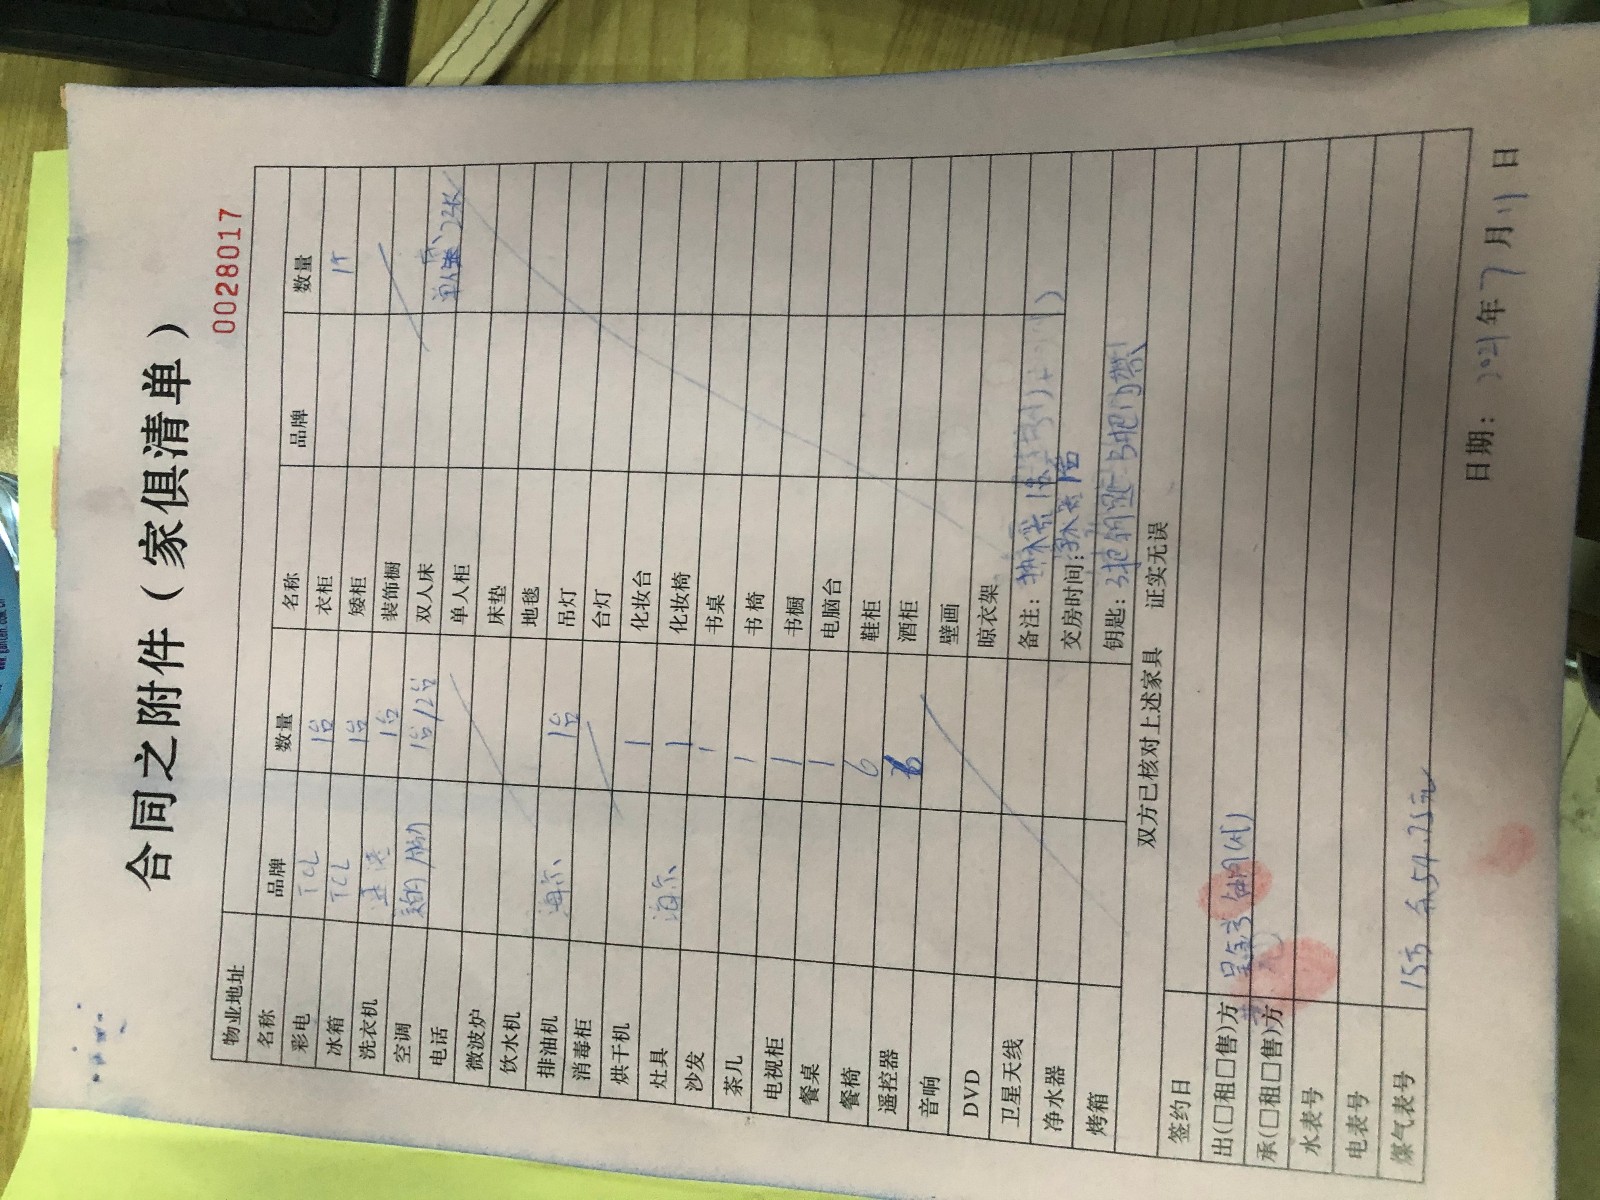 合同之附件（家俱清单）
0028017
物业地址
名称 品牌 数量 名称 品牌 数量
彩电 TCL 1台 衣柜 1个
冰箱 TCL 1台 矮柜
洗衣机 1台 装饰橱
空调 1台/2台 双人床
电话 单人柜
微波炉 床垫
饮水机 地毯
排油机 海尔 1台 吊灯
消毒柜 台灯
烘干机 化妆台
灶具 海尔 1 化妆椅
沙发 1 书桌
茶几 1 书椅
电视柜 1 书橱
餐桌 1 电脑台
餐椅 1 鞋柜
遥控器 6 酒柜
音响 壁画
DVD 晾衣架
卫星天线 备注：热水器1台
净水器 交房时间：净水器1台
烤箱 钥匙：3把钥匙 3把门禁
双方已核对上述家具 证实无误
签约日
出(□租□售)方
承(□租□售)方
水表号
电表号
煤气表号 15方 余54.75元
日期：2021年7月11日